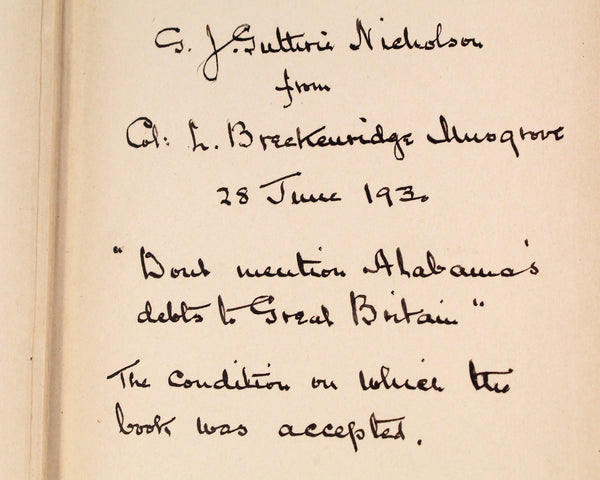 G. J. Guthrie Nicholson
from
Col: L. Breckenridge Musgrove
28 June 193.
"Dont mention Alabama's
debts to Great Britain"
The condition on which this
book was accepted.